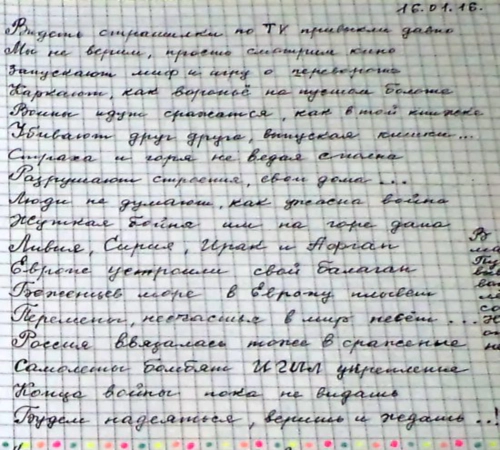 16.01.16.
Видеть страшилки по TV привыкли давно
Мы не верим, просто смотрим кино
Запускают миф и игру о перевороте
Каркают, как вороньё на пустом болоте
Воины идут сражаться, как в той книжке
Убивают друг друга, выпуская кишки...
Страха и горя не ведая сполна
Разрушают строения, свои дома...
Люди не думают, как ужасна война
Жуткая бойня им на горе дана
Ливия, Сирия, Ирак и Афган
Европе устроили свой балаган
Беженцев море в Европу плывёт
Перемены, несчастья в мир несёт...
Россия ввязалась тоже в сраженье
Самолеты бомбят ИГИЛ укрепление
Конца войны пока не видать
Будем надеяться, верить и ждать..!